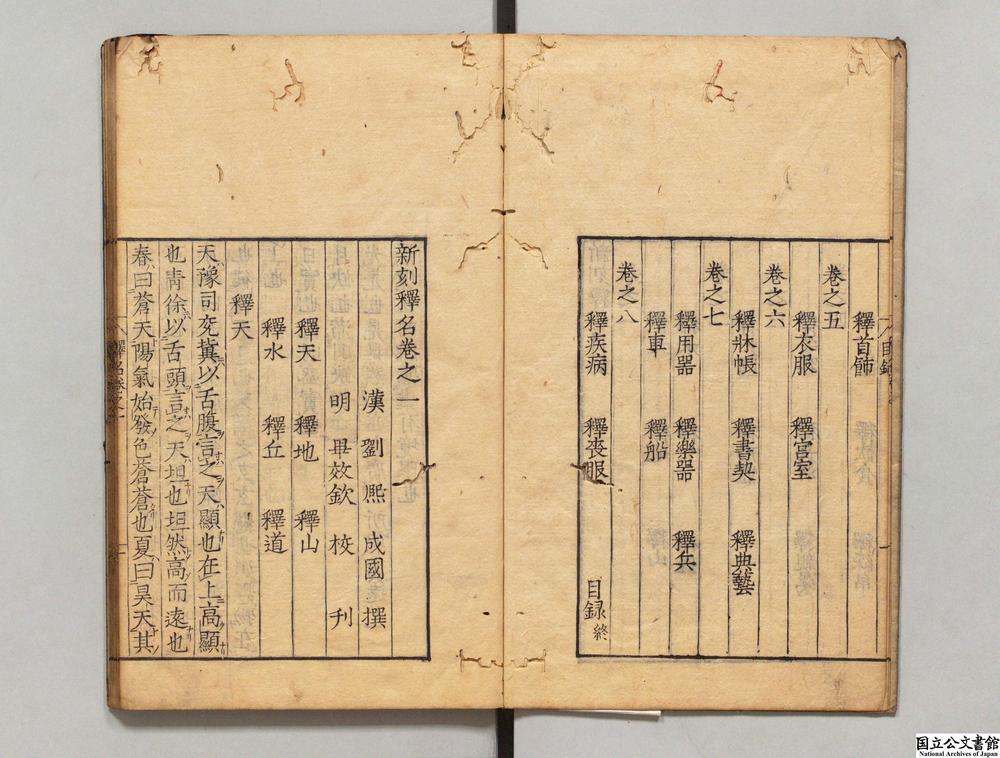 目錄
釋首飾
卷之五
釋衣服 釋宮室
卷之六
釋牀帳 釋書契 釋典藝
卷之七
釋用器 釋樂器 釋兵
釋車 釋船
卷之八
釋疾病 釋喪
目録終
新刻釋名卷之一
漢 劉熙 成國 撰
明 畢效欽 校 刊
釋天 釋地 釋山
釋水 釋丘 釋道
釋天
天豫司兗冀以舌腹言之天顯也在上高顯
也靑徐以舌頭言之天坦也坦然高而遠也
春曰蒼天陽氣始發色蒼蒼也夏曰昊天其
釋名卷之一
国立公文書館
National Archives of Japan